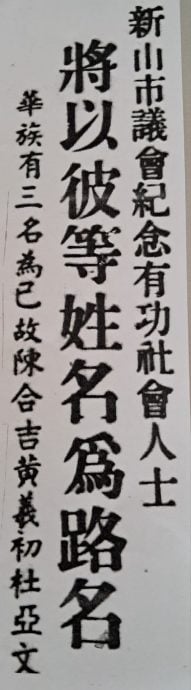 新山市議會紀念有功社會人士
將以彼等姓名爲路名
華族有三名為已故陳合吉黃羲初杜亞文